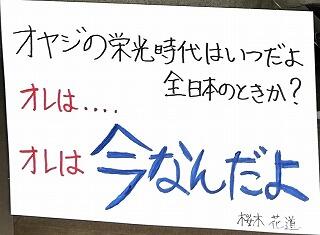 オヤジの栄光時代はいつだよ
全日本のときか?
オレは....
オレは今なんだよ
桜木 花道